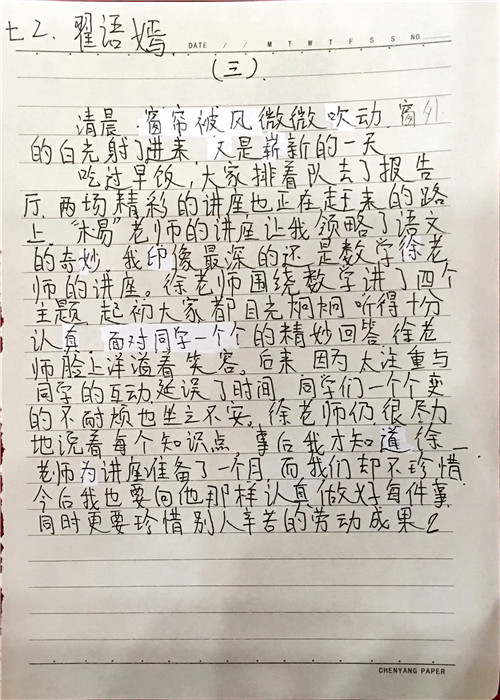 七2. 翟语嫣
DATE / / M T W T F S S NO.
(三).
清晨,窗帘被风微微吹动,窗外
的白光射了进来 又是崭新的一天
吃过早饭,大家排着队去了报告
厅,两场精彩的讲座也正在赶来的路
上,"木易"老师的讲座让我领略了语文
的奇妙,我印像最深的还是数学徐老
师的讲座。徐老师围绕数学讲了四个
主题,起初大家都目光炯炯 听得十分
认真,面对同学一个个的精妙回答,徐老
师脸上洋溢着笑容。后来,因为太注重与
同学的互动,延误了时间,同学们一个个变
的不耐烦也坐立不安。徐老师仍很尽力
地说着每个知识点,事后我才知道,徐
老师为讲座准备了一个月,而我们却不珍惜,
今后我也要向他那样认真做好每件事,
同时更要珍惜别人辛苦的劳动成果
CHENYANG PAPER